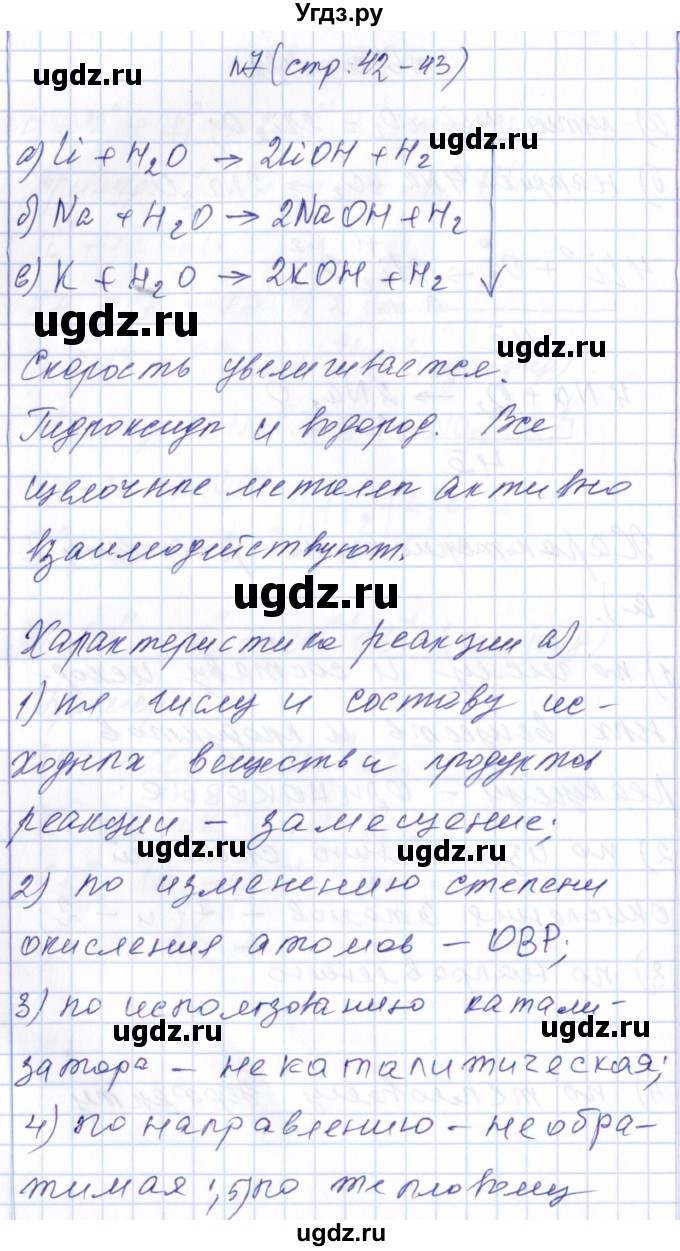 Угдз.ру
ugdz.ru
№7 (стр. 42-43)
а) Li + H2O → 2LiOH + H2
ugdz.ru
б) Na + H2O → 2NaOH + H2
в) K + H2O → 2KOH + H2
ugdz.ru
ugdz.ru
Скорость увеличивается.
Гидроксиды и водород. Все
щелочные металлы активно
взаимодействуют.
ugdz.ru
Характеристика реакции а)
1) по числу и составу ис-
ходных веществ и продуктов
реакции – замещение;
ugdz.ru ugdz.ru
2) по изменению степени
окисления атомов – ОВР;
3) по использованию катали-
ugdz.ru ugdz.ru
затора – некаталитическая;
4) по направлению – необра-
тимая; 5) по тепловому
ugdz.ru